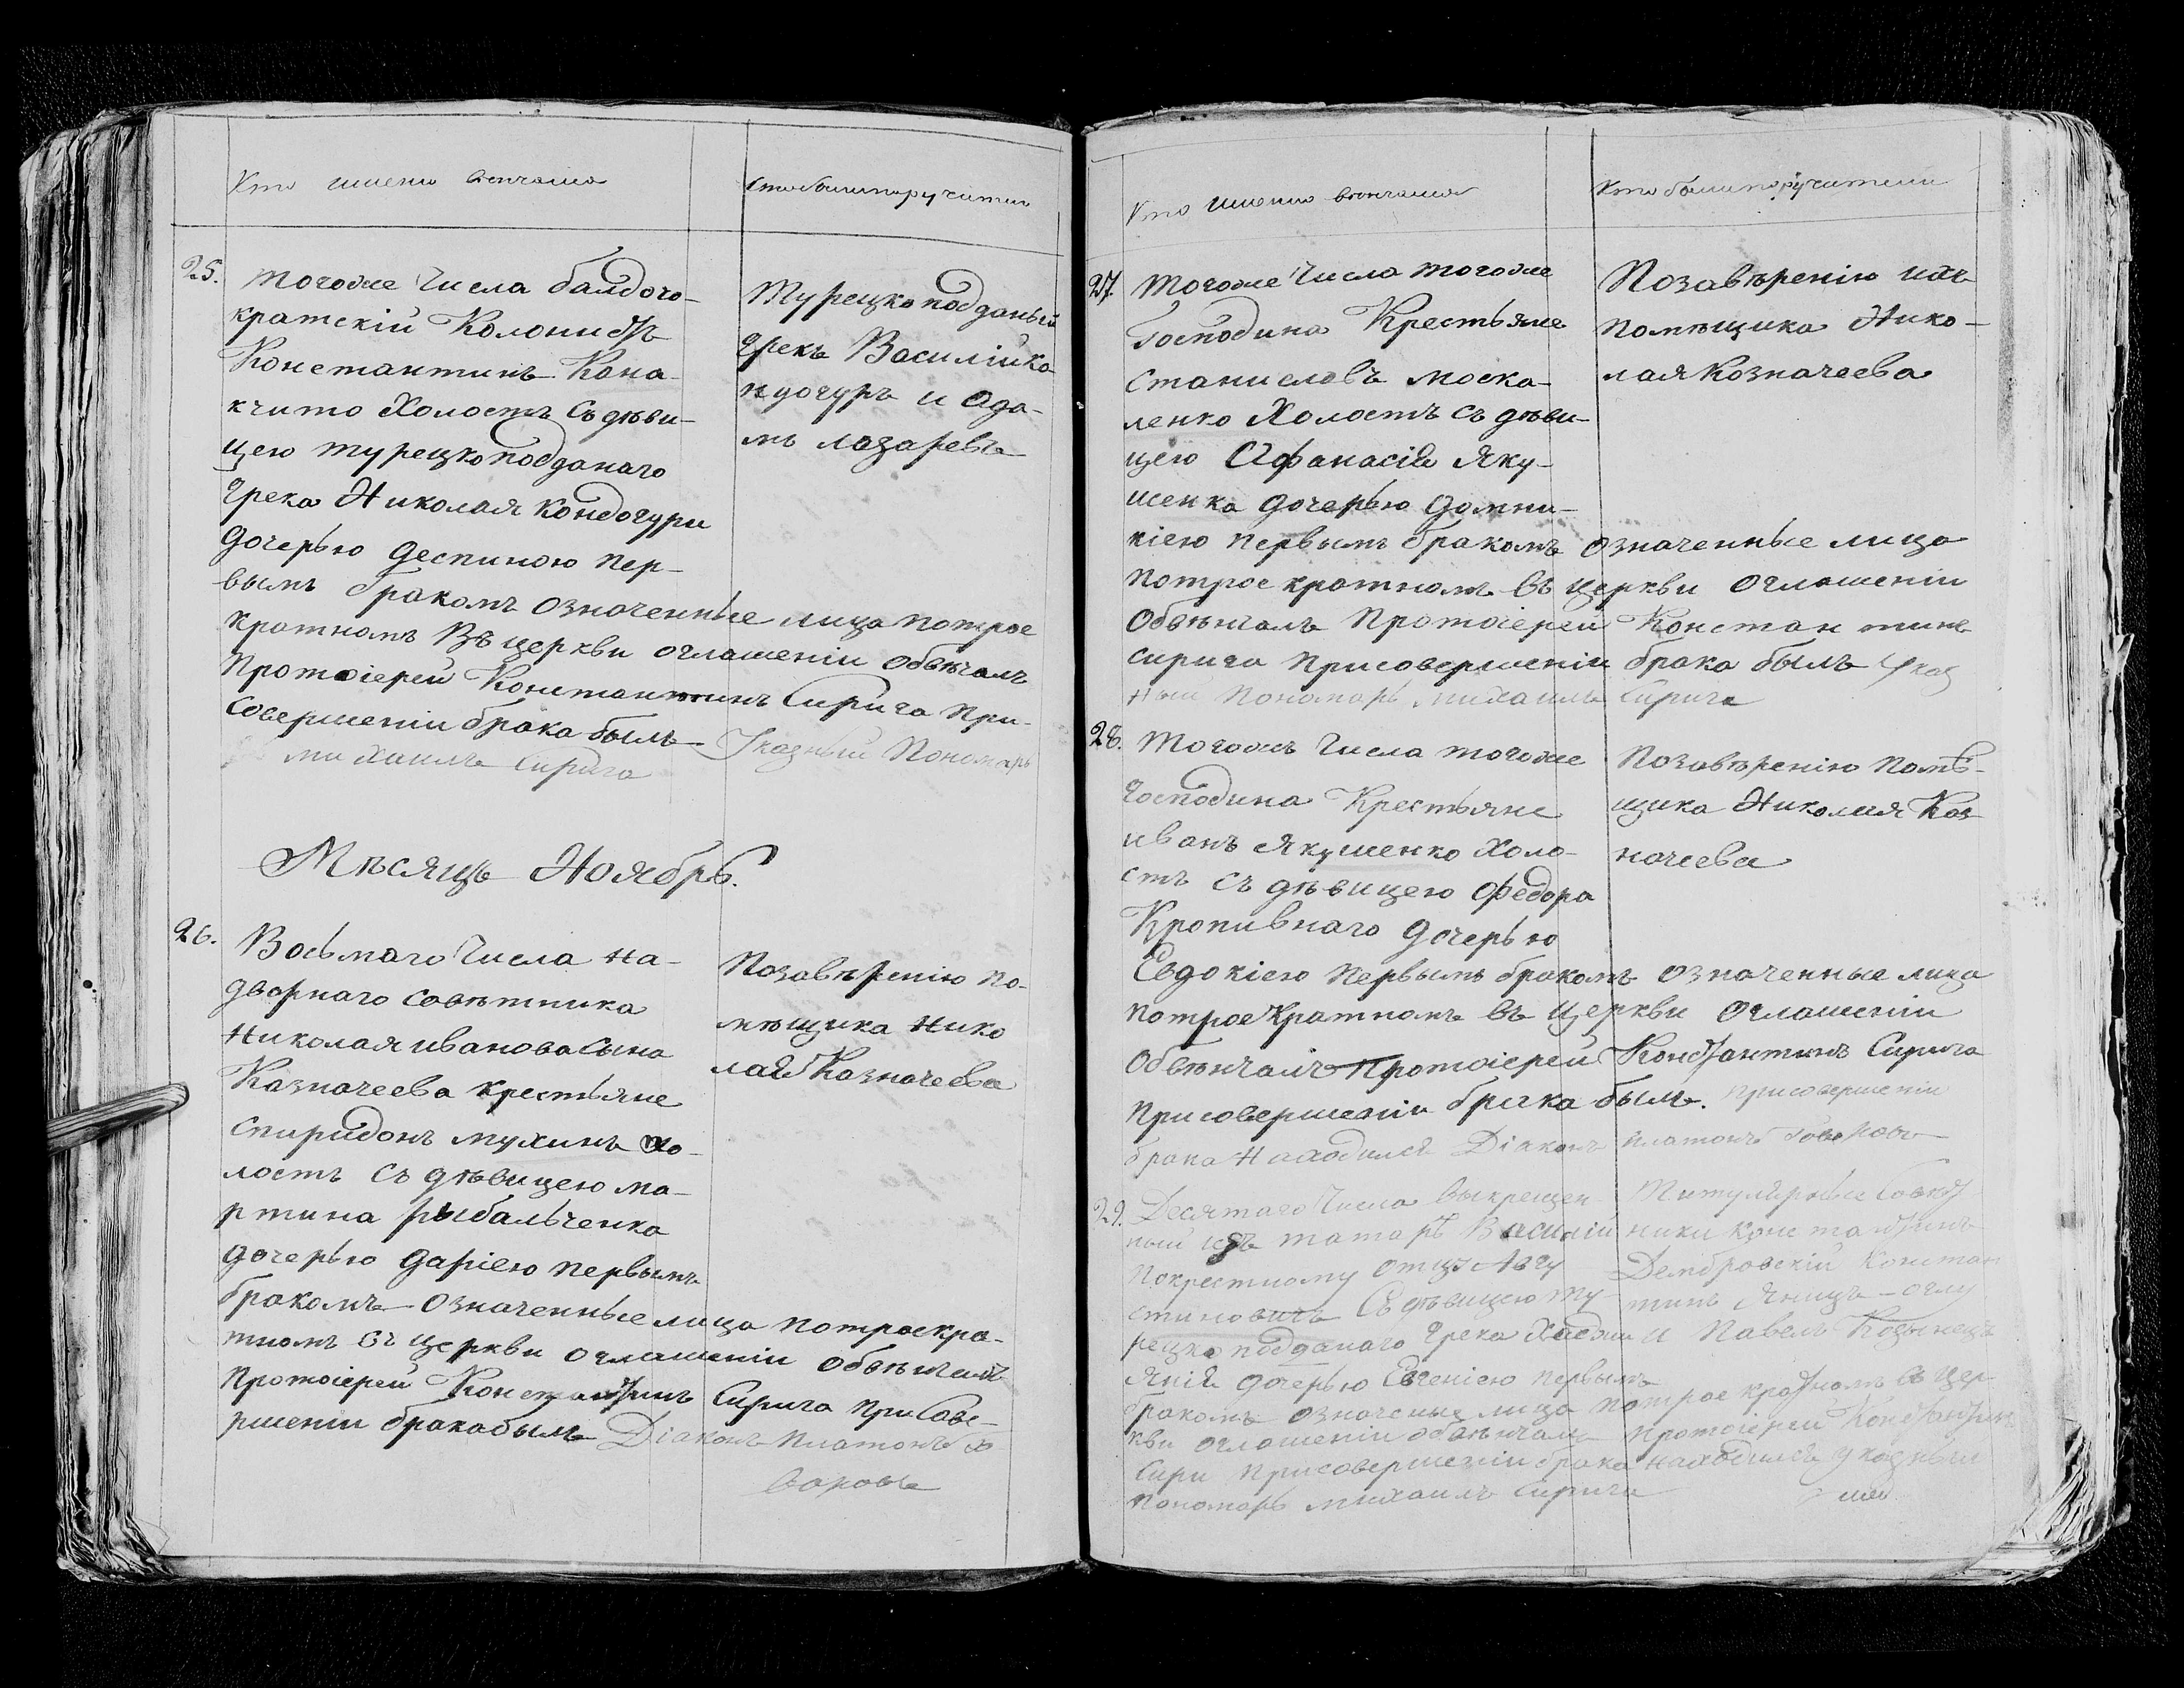 Кто именно венчанъ
Кто были поручители
25.
Тогоже числа балдого-
кратскій Колонистъ
Константинъ Кана-
кчито Холостъ съ дѣви-
цею турецкоподданаго
Грека Николая Кондогури
дочерью Деспиною пер-
вымъ бракомъ означенные лица потрое
кратномъ въ церкви оглашеніи обвѣчалъ
Протоіерей Константинъ Сирига При-
совершеніи брака былъ Указный Пономарь
михаилъ Сирига
Турецко подданый
Грекъ Василій Ка
ндогуръ и Ада-
мъ лазаревъ
Мѣсяцъ Ноябрь.
26.
Восьмаго числа на-
дворнаго совѣтника
Николая иванова сына
Казначеева крестьяне
Спиридонъ мухинъ хо-
лостъ съ дѣвицею ма-
ртина рыбальченка
дочерью дарiею первымъ
бракомъ означенные лица потроекра-
тномъ въ церкви оглашеніи обвѣнчалъ
Протоіерей Константинъ Сирига при сове-
ршеніи брака былъ Діаконъ Платонъ
Позавѣренію по-
мѣщика Нико
лая Казначеева
Кто именно венчанъ
Кто были поручители
27.
Тогоже числа тогоже
Господина Крестьяне
Станиславъ моска-
ленко Холостъ съ дѣви-
цею Афанасія Яку-
шенка дочерью домни-
кіею первымъ бракомъ означенные лица
потрое кратномъ въ церкви оглашеніи
Обвѣнчалъ Протоіерей Константинъ
Сирига присовершеніи брака былъ Указ
ный Пономарь михаилъ Сирига
Позавѣренію ихъ
помѣщика Нико-
лая Козначеева
28.
Тогожъ числа тогоже
Господина Крестьяне
иванъ Якушенко Холо-
стъ съ дѣвицею Федора
Кропивнаго дочерью
Евдокіею первымъ бракомъ означенные лица
потроекратномъ въ церкви оглашеніи
Обвѣнчалъ Протоіерей Константинъ Сирига
присовершеніи брака былъ. присовершеніи
брака находился Діаконъ платонъ
Позавѣренію помѣ-
щика Николая Каз-
начеева
29.
Десятаго числа выкрещен-
ный изъ татаръ Василій
покрестному отцу Авгу
стиновичъ Съ дѣвицею ту-
рецко подданаго Грека
Янія дочерью Евгеніею первымъ
бракомъ означеные лица потрое кратномъ въ цер-
кви оглашеніи обвѣнчалъ протоіерей Константинъ
Сири присовершеніи брака находился указный
пономарь михаилъ Сирига
Титулярные Совѣт
ники Константинъ
Дембровскій Констан
тинъ Яницъ-оглу
и Павелъ